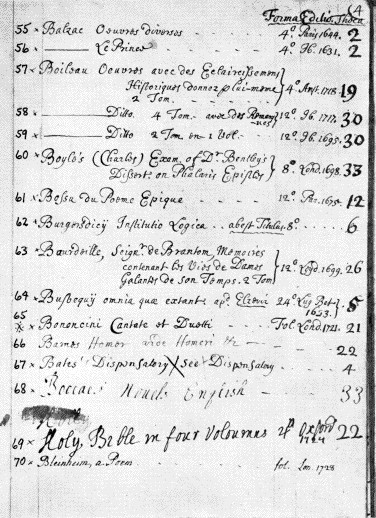 84
Forma Editio. Theca
55 × Balzac Oeuvres diverses - - - 4º Paris 1644. 2
56 × ——— Le Prince - - - 4º Ib. 1631. 2
57 × Boileau Oeuvres avec des Eclaircissemens
Historiques donnez p lui-meme 4º Amst. 1718. 19
2 Tom.
58 × ——— Ditto. 4 Tom. avec des Remarques 12º Ib. 1717. 30
59 × ——— Ditto 2 Tom in 1 Vol. - - - 12º Ib. 1695. 30
60 × Boyle's (Charles) Exam. of Dr. Bentley's
Dissert. on Phalaris Epistles 8º Lond. 1698. 33
61 × Bossu du Poeme Epique - - - 12º Par. 1675. 12
62 × Burgersdicij Institutio Logica. abest Titulus. 8º - - - 6
63 × Bourdeille, Seignr. de Brantom, Memoires
contenant les Vies de Dames 12º Leyd. 1699. 26
Galantes de son Temps. 2 Tom
64 × Busbequij omnia quæ extant. ap. Elzevir 24º Lug. Bat. 1633. 5
65 × Bononcini Cantate et Duetti - - - Fol. Lond. 1721. 21
66 Barnes Homer vide Homeri - - - 22
67 × Bates' Dispensatory × See Dispensatory - - 4
68 × Boccace Novels English - - - 33
69 × Holy Bible in four Voloumns 4º Oxford 22
70 × Bleinheim, a Poem - - - fol. Lon. 1728